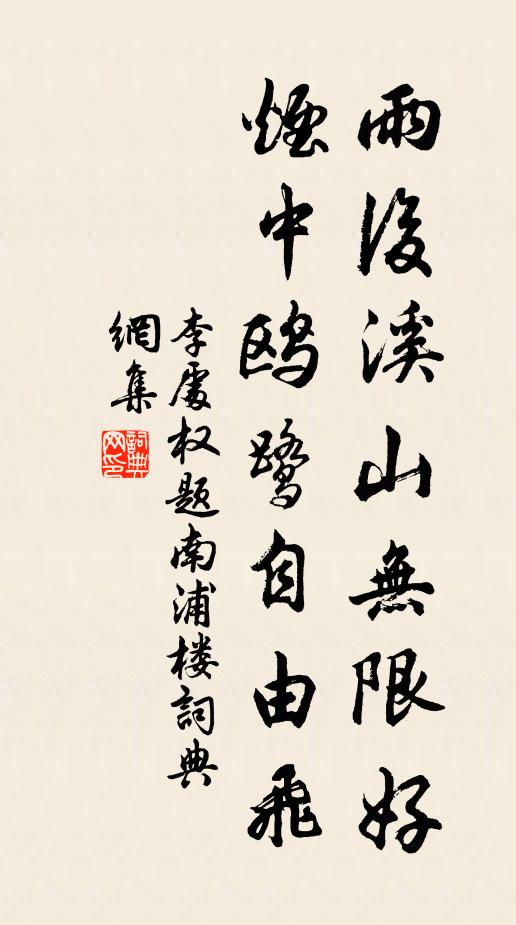 雨後溪山無限好
煙中鸥鷺自由飛
李處权题南浦楼詞典
網集
詞典网印